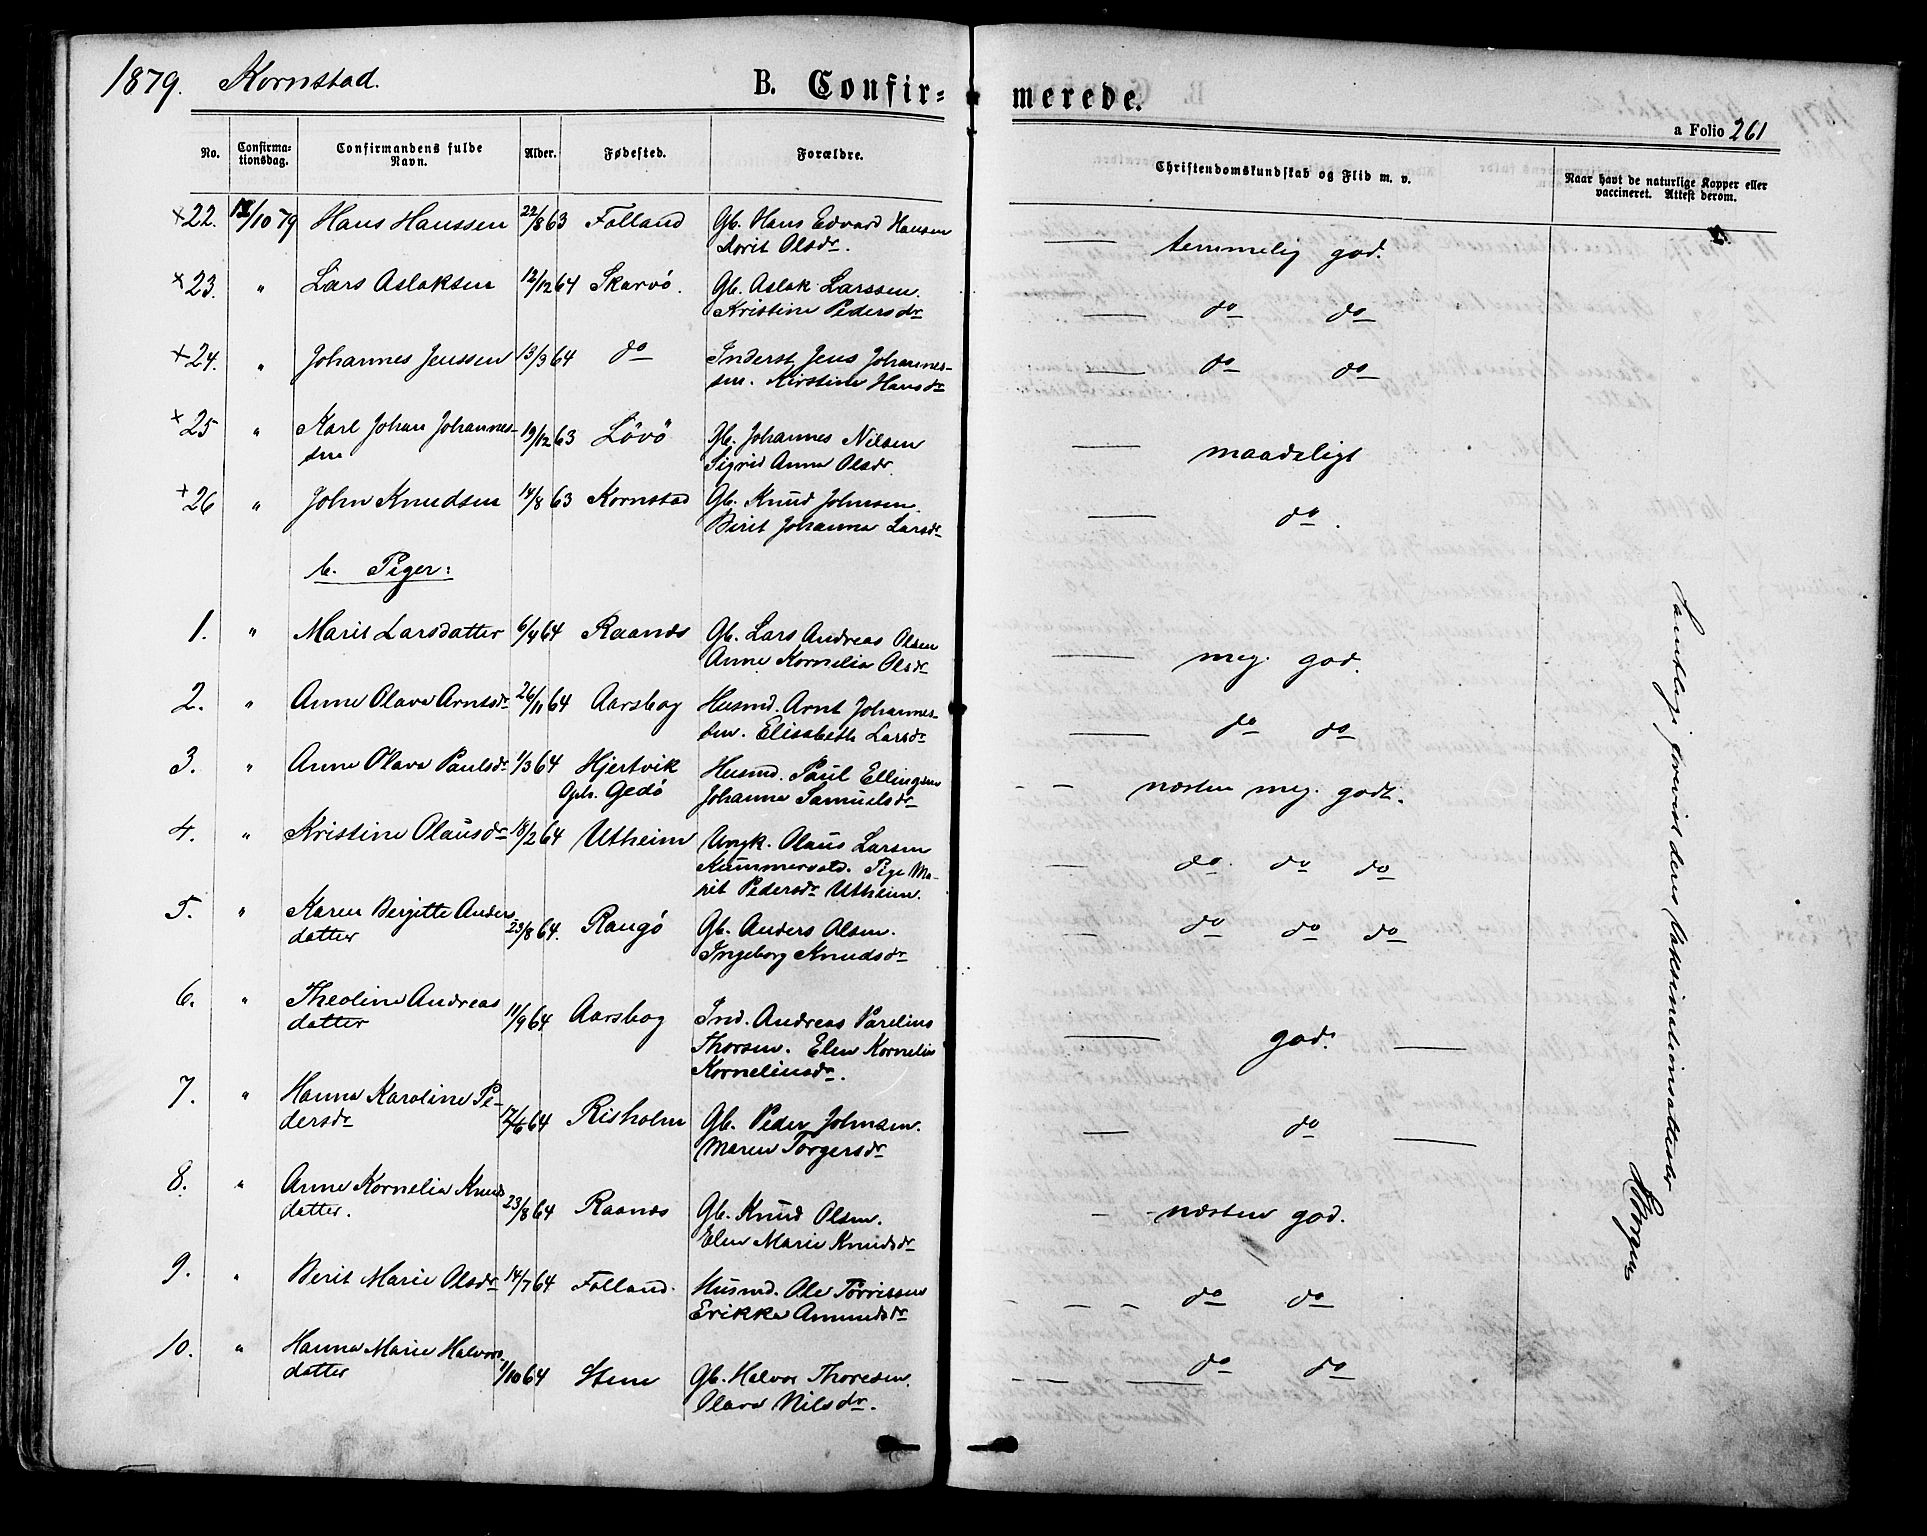 1879. Kornstad.
B. Confir-
merede.
a Folio 261
No.
Confirma-
tionsdag.
Confirmandens fulde
Navn.
Alder.
Fødested.
Forældre.
Christendomskundskab og Flid m. v.
Naar havt de naturlige Kopper eller
vaccineret. Attest derom.
+22. /10 79 Hans Hanssen 22/8 63 Folland Gb. Hans Edvard Hansen
Dorit Olsdr. — temmelig god.
+23. " Lars Aslaksen 12/12 64 Skarvø. Gb. Aslak Larssen.
Kristine Pedersdr — do do
+24. " Johannes Jenssen 13/9 64 do Inderst Jens Johannes-
sen. Kirstine Hansdr — do do
+25 " Karl Johan Johannes-
sen 19/12 63 Løvø Gb. Johannes Nilsen
Sigrid Anna Olsdr. — maadeligt
+26 " John Knudsen 14/8 63 Kornstad Gb. Knud Johnsen.
Berit Johanna Larsdr — do.
b. Piger:
1. " Marit Larsdatter 6/4 64 Raanes Gb. Lars Andreas Olsen
Anne Kornelia Olsdr — meg. god.
2. " Anne Olava Arntsdr 26/11 64 Aarsbog Husmd. Arnt Johannes-
sen. Elisabeth Larsdr — do do
3. " Anne Olava Paulsdr 1/3 64 Hjertvik
Oph. Gedø Husmd. Paul Ellingsen
Johanna Samuelsdr - - næsten meg. godt.
4. " Kristine Olausdr 18/2 64 Utheim Ungk. Olaus Larsen
Kummervold. Pige Ma-
rit Pedersdr Utheim. — do. do do
5. " Karen Bergitte Anders
datter 23/8 64. Rangø Gb. Anders Olsen.
Ingeborg Knudsdr — do do do
6. " Theoline Andreas
datter 11/9 64 Aarsbog Ind. Andreas Parelius
Thorsen. Elen Kornelia
Korneliusdr. — god. —
7. " Hanna Karoline Pe-
dersdr 17/6 64 Risholm Gb. Peder Johnsen.
Maren Torgersdr — do —
8. " Anne Kornelia Knuds
datter. 23/8 64 Raanes Gb. Knud Olsen.
Elen Marie Knudsdr - - næsten god.
9. " Berit Marie Olsdr 14/7 64 Folland. Husmd. Ole Torrissen
Erikka Amundsdr - - - do do
10. " Hanna Marie Halvors
datter 1/10 64 Stene Gb. Halvor Thoresen.
Olava Nilsdr. - - — do do
Samtlige forevist deres Vaksinationsattester